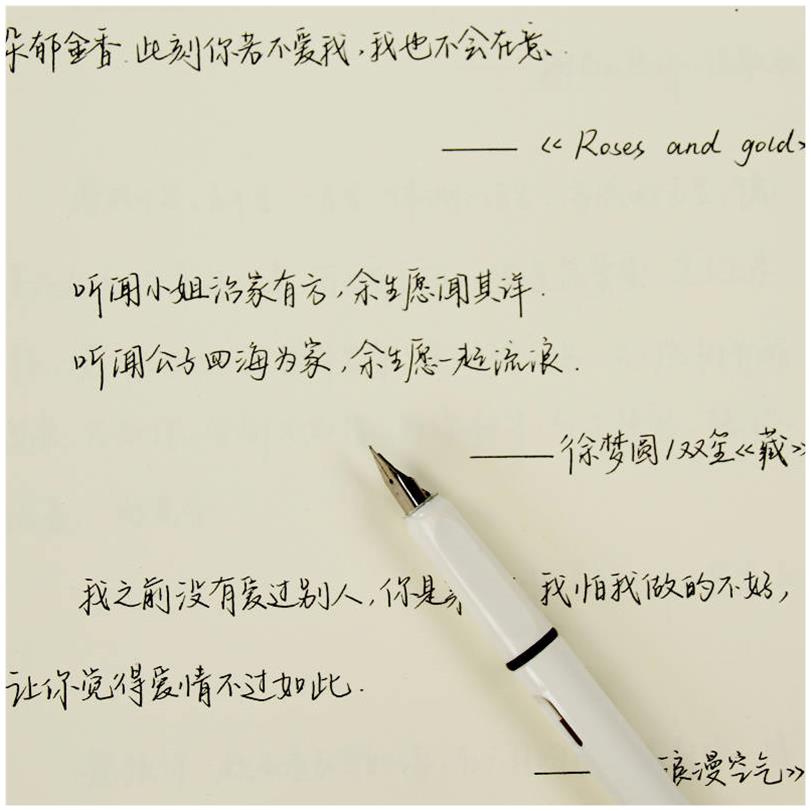 朵郁金香.此刻你若不爱我,我也不会在意.
——《Roses and gold>
听闻小姐治家有方,余生愿闻其详.
听闻公子四海为家,余生愿一起流浪.
——徐梦圆/双笙《藏》
我之前没有爱过别人,你是 我怕我做的不好,
让你觉得爱情不过如此.
—— 浪漫空气》